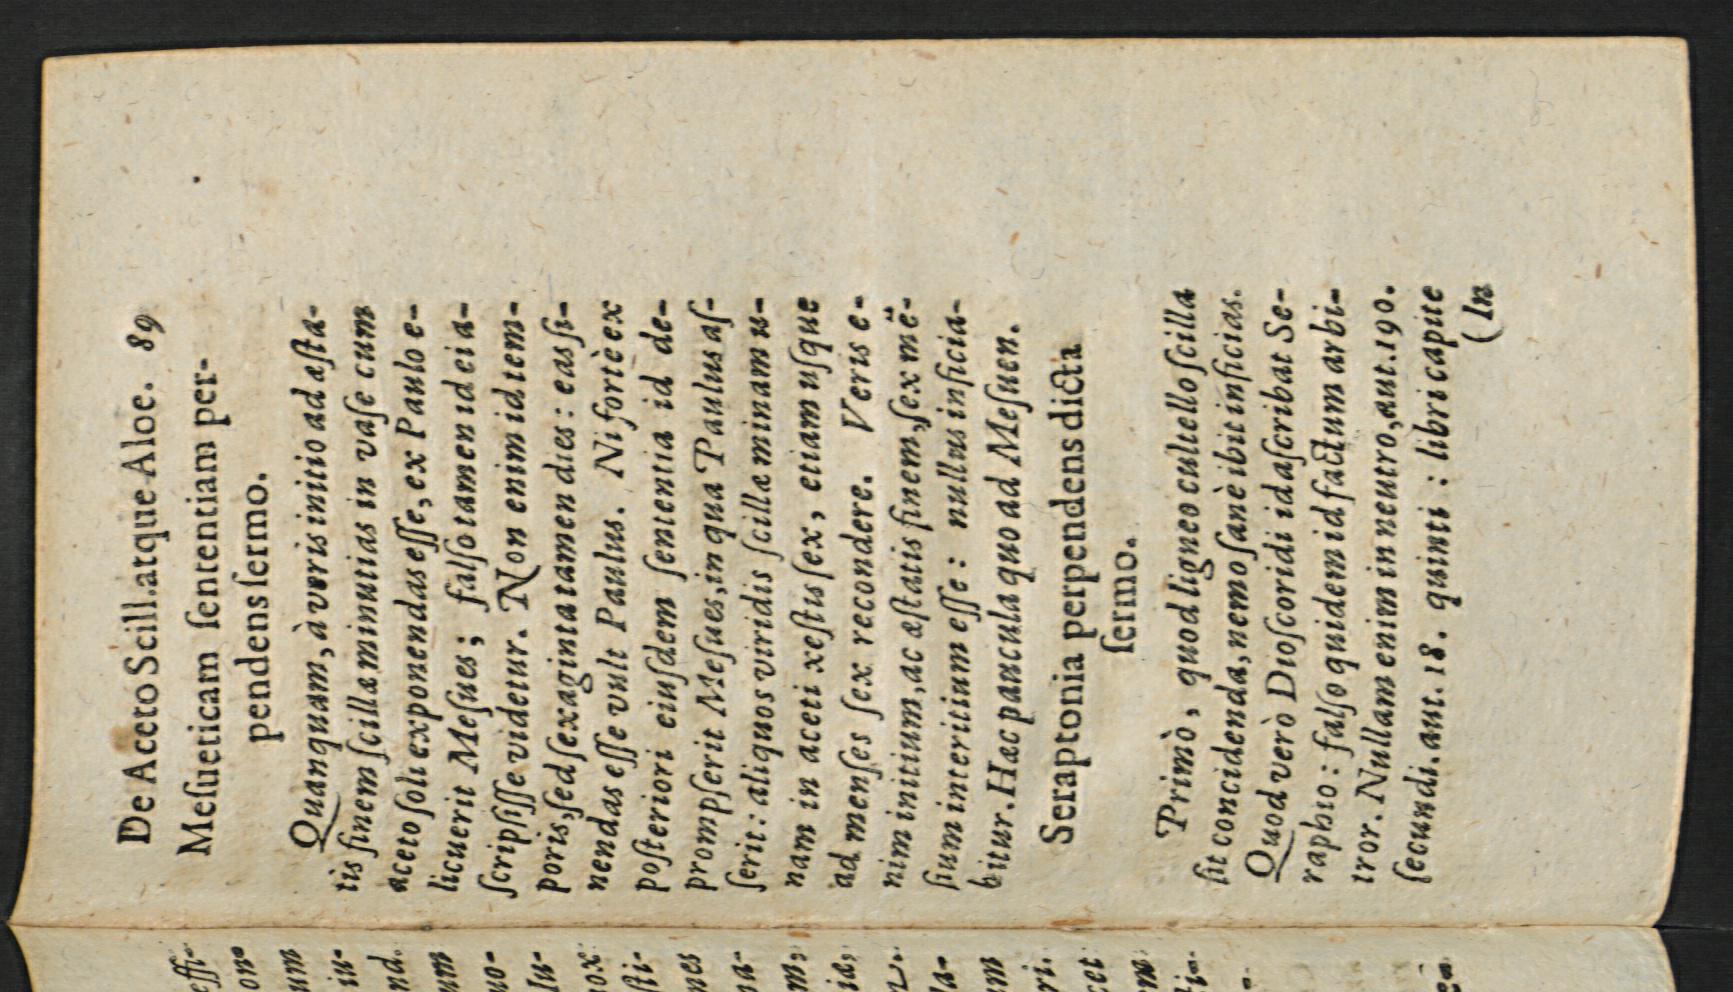 De Aceto Scill. atque Aloe. 89
Meſueticam ſententiam per-
pendens ſermo.
Quanquam, à veris initio ad æſta-
tis finem ſcillæ minutias in vaſe cum
aceto ſoli exponendas eſſe, ex Paulo e-
licuerit Meſues; falſo tamen id ei a-
ſcripſiſſe videtur. Non enim id tem-
poris, ſed ſexaginta tamen dies: eas ſi-
nendas eſſe vult Paulus. Ni fortè ex
poſteriori eiuſdem ſententia id de-
prompſerit Meſues, in qua Paulus aſ-
ſerit: aliquos viridis ſcillæ minam u-
nam in aceti xeſtis ſex, etiam uſque
ad menſes ſex recondere. Veris e-
nim initium, ac æſtatis finem, ſex mẽ-
ſium interitium eſſe: nullus inficia-
bitur. Hac paucula quo ad Meſuen.
Seraptonia perpendens dicta
ſermo.
Primò, quod ligneo cultello ſcilla
ſit concidenda, nemo ſanè ibit inficias.
Quod verò Dioſcoridi id aſcribat Se-
raphio: falſo quidem id factum arbi-
tror. Nullam enim in neutro, aut. 190.
ſecundi. aut. 18. quinti: libri capite
(In
eſſi-
on-
um
iu-
nd.
um
uo-
lu-
nox
ſti-
nes
na-
m,
iæ,
la-
um
ri.
cet